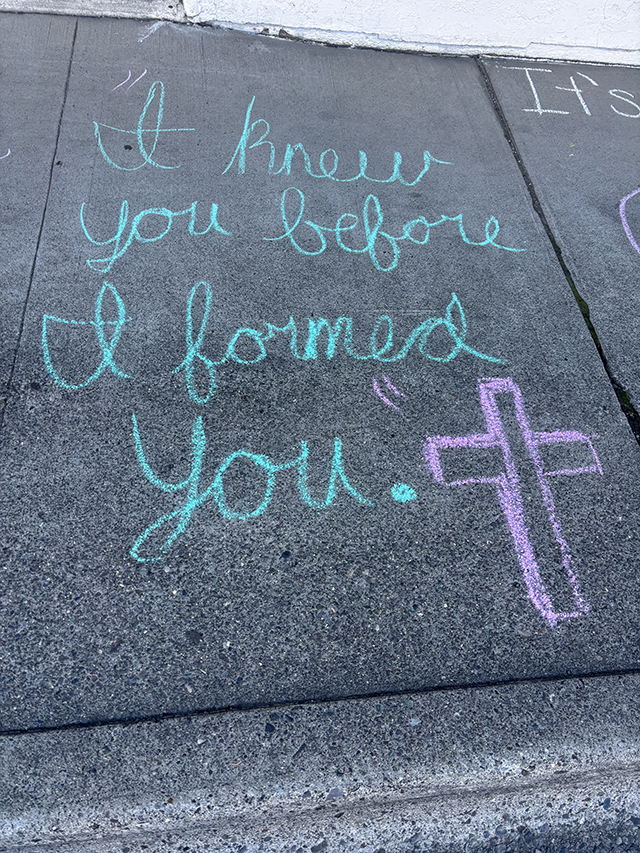 "I knew
you before
I formed
You."
It's